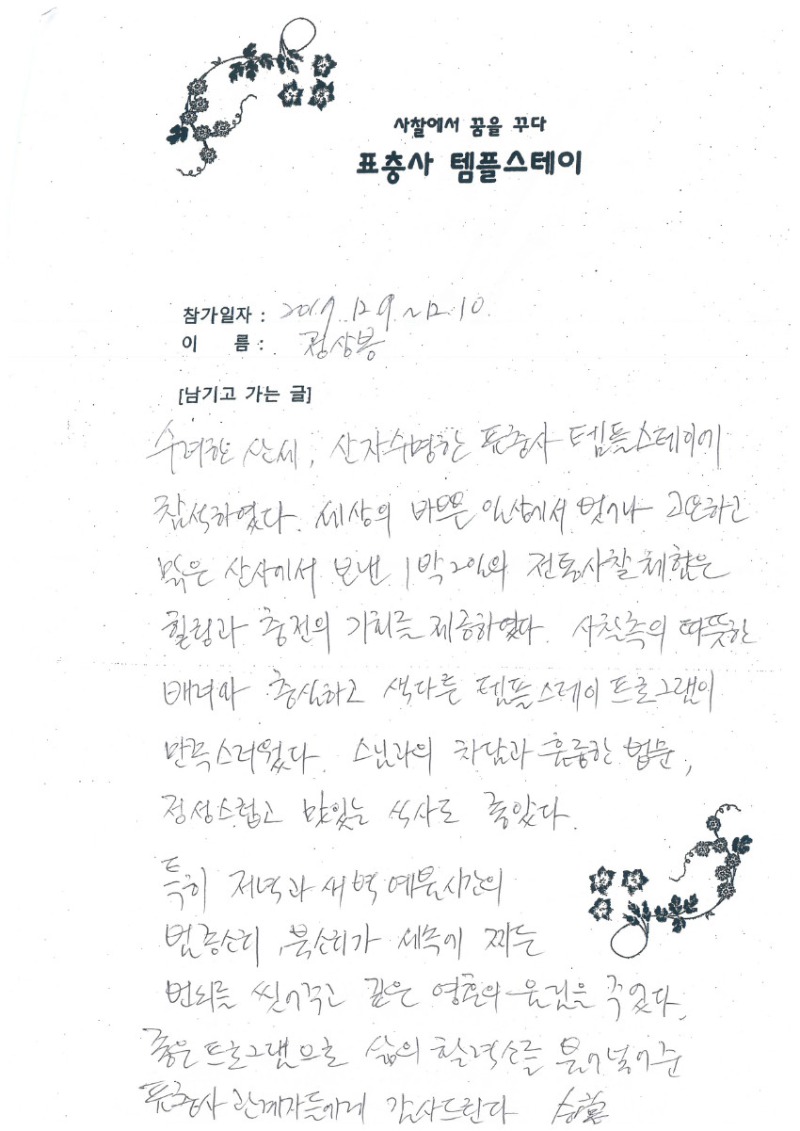 사찰에서 꿈을 꾸다
표충사 템플스테이
참가일자 : 2017. 12. 9. ~ 12. 10.
이 름 : 정상봉
[남기고 가는 글]
수려한 산세, 산자수명한 표충사 템플스테이에
참석하였다. 세상의 바쁜 일상에서 벗어나 고요하고
맑은 산사에서 보낸 1박2일의 전통사찰체험은
힐링과 충전의 기회를 제공하였다. 사찰측의 따뜻한
배려와 충실하고 색다른 템플스테이 프로그램이
만족스러웠다. 스님과의 차담과 훌륭한 법문,
정성스럽고 맛있는 식사도 좋았다.
특히 저녁과 새벽 예불시간의
범종소리, 북소리가 세속에 찌든
번뇌를 씻어주고 깊은 영혼의 울림을 주었다.
좋은 프로그램으로 삶의 활력소를 불어넣어준
표충사 관계자들에게 감사드린다